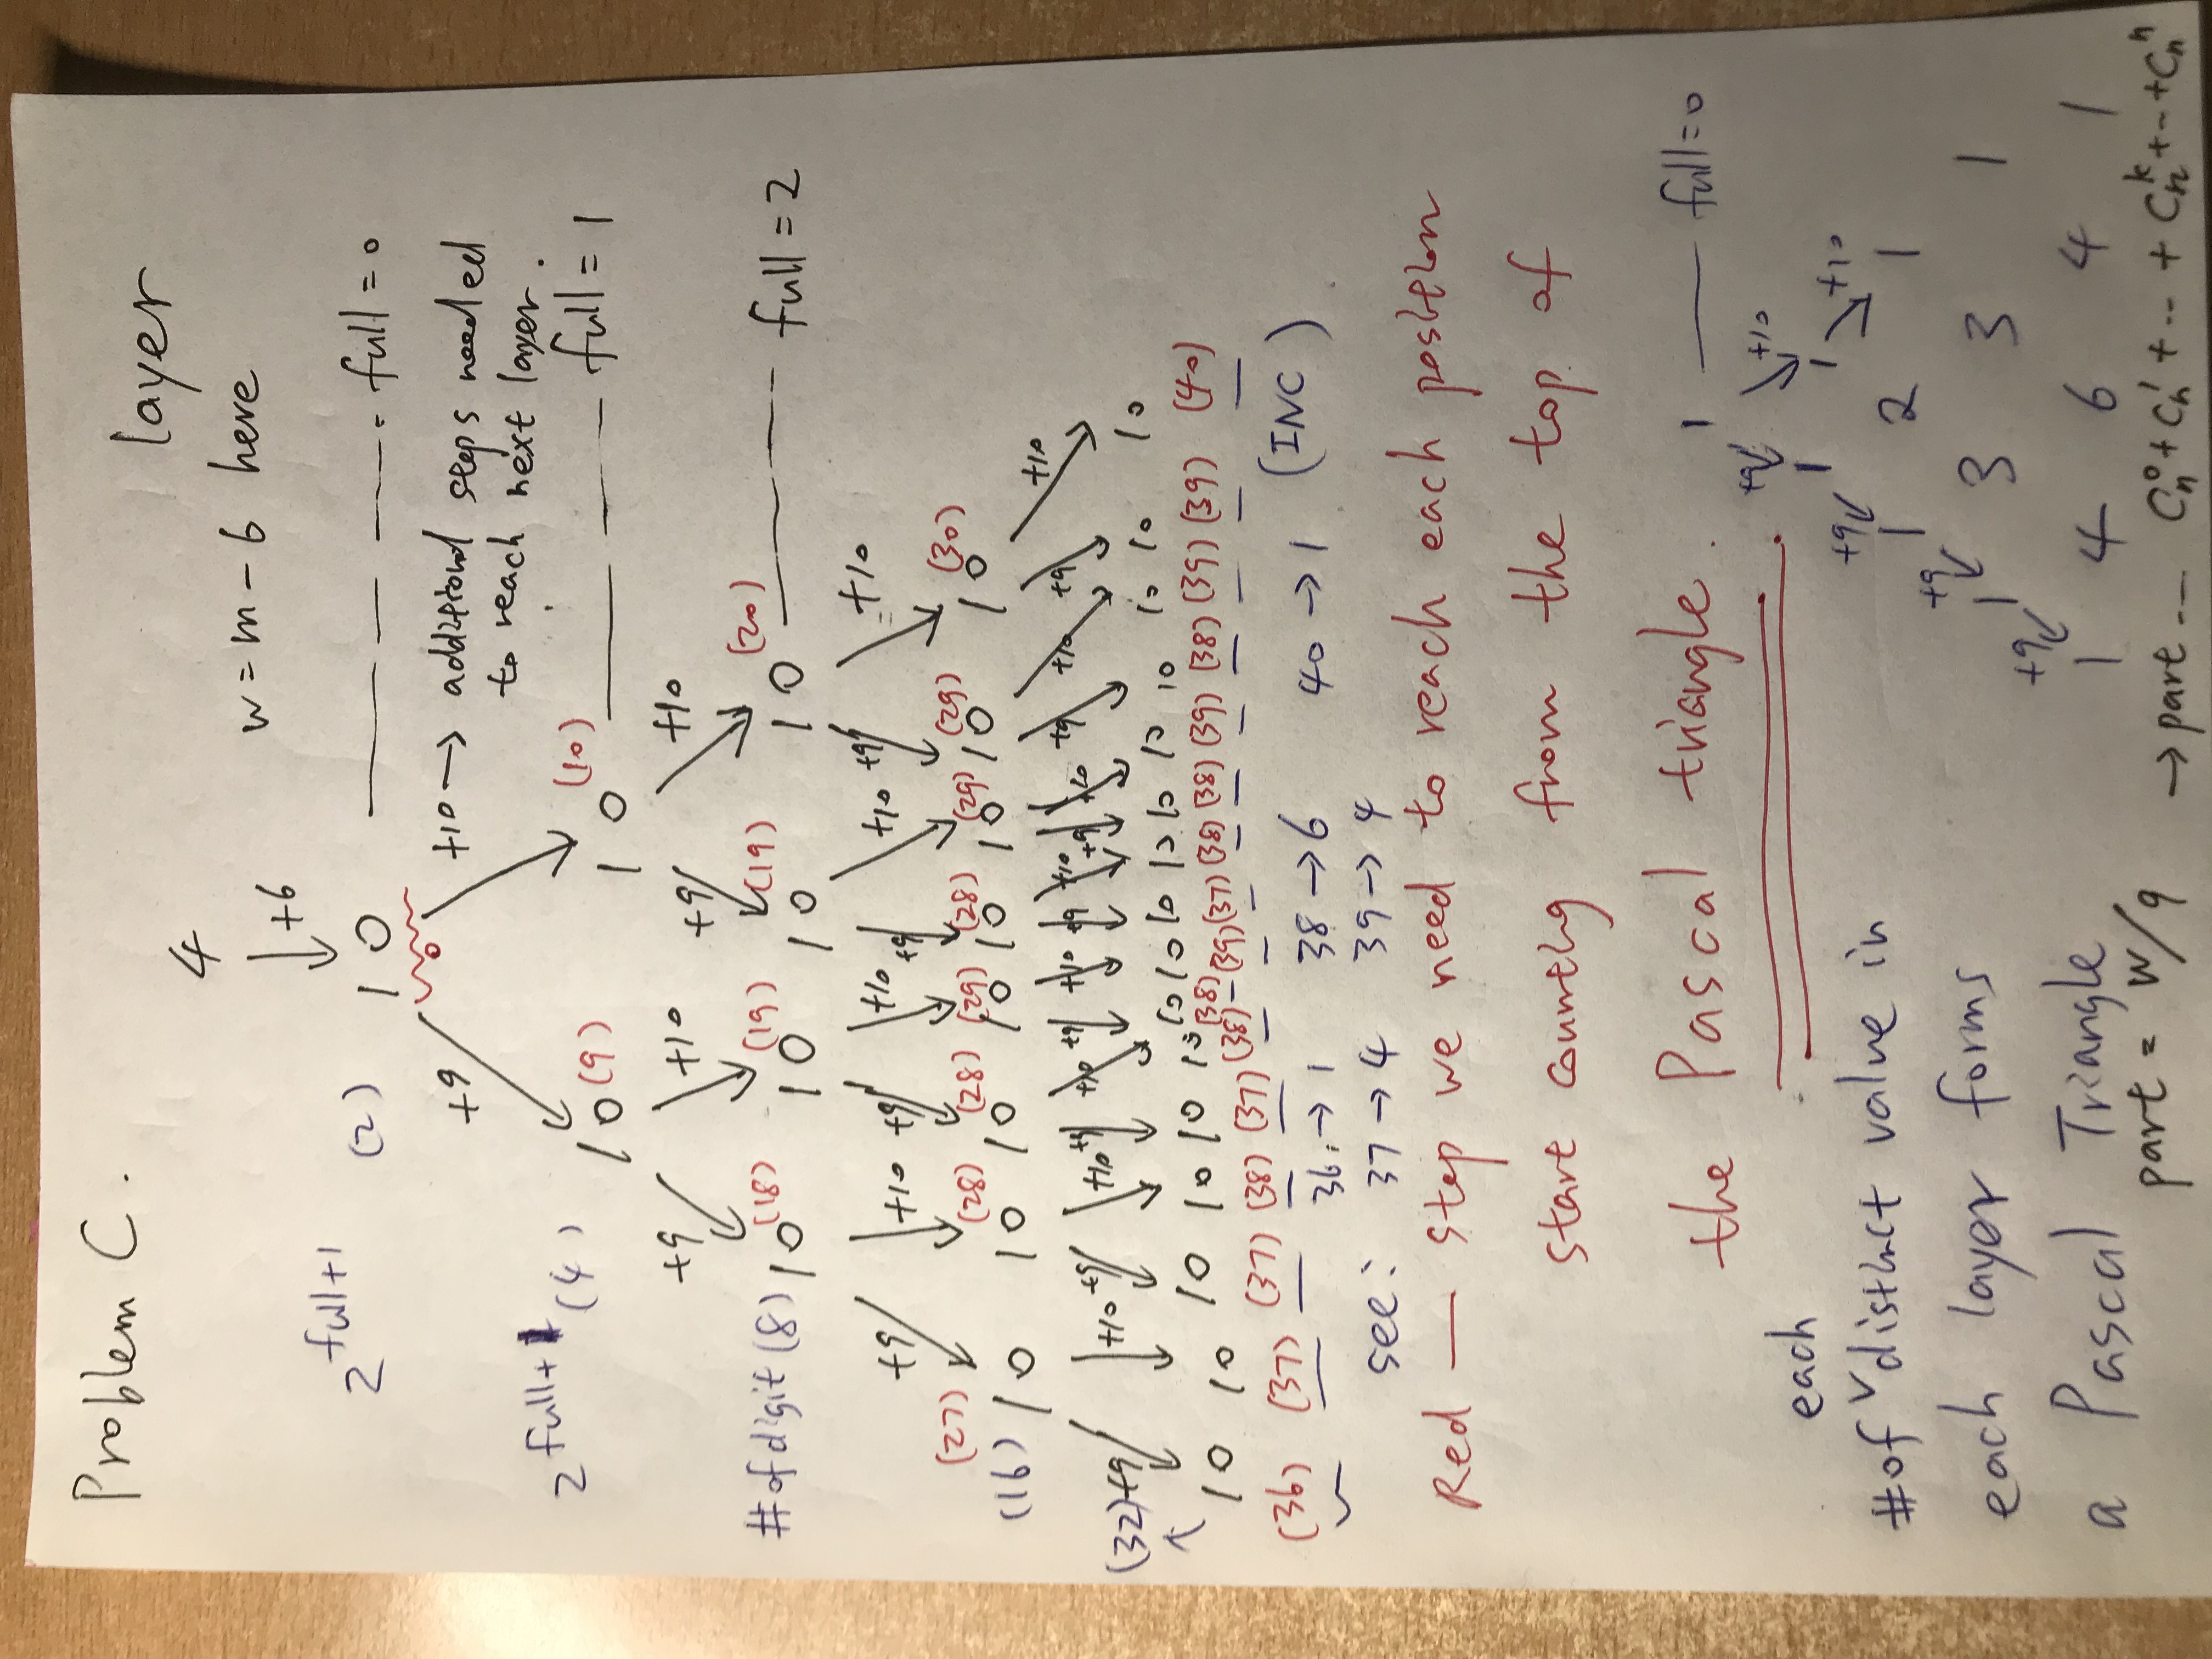 Problem C.
4 layer
+6 w = m - 6 here
2^{full+1} (2) 1 0 full = 0
+9 +10 → additional steps needed
to reach next layer.
2^{full+1} (4) 1 0 (9) 1 0 (10) full = 1
+9 +10 +9 +10
#of digit (8) 1 0 (18) 1 0 (19) 1 0 (19) 1 0 (20) full = 2
+9 +10 +9 +10 +9 +10 +9 +10
(27) (28) (28) (29) (28) (29) (29) (30)
(16) 1 0 1 0 1 0 1 0 1 0 1 0 1 0 1 0
(32) +9 +10 +9 +10 +9 +10 +9 +10 +9 +10 +9 +10 +9 +10 +9 +10
1 0 1 0 1 0 1 0 1 0 1 0 1 0 1 0 1 0 1 0 1 0 1 0 1 0 1 0 1 0 1 0
(36) (37) (37) (38) (37) (38) (38) (39) (37) (38) (38) (39) (38) (39) (39) (40)
see: 36 → 1 38 → 6 40 → 1 (INC)
37 → 4 39 → 4
Red — step we need to reach each position
start counting from the top of
the Pascal triangle.
each
#of distinct value in
each layer forms
a Pascal Triangle
part = w/9
1 full=0
+9 +10
1 1
+9 +10
1 2 1
+9
1 3 3 1
+9
1 4 6 4 1
→ part -- C_n^0 + C_n^1 + ... + C_n^k + -- + C_n^n